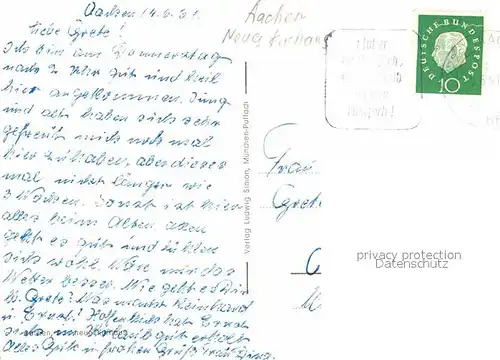 Aachen 14.6.61.
Liebe Grete!
Ich bin am Donnerstag
nach 2 Uhr gut und heil
hier angekommen. Jung
und alt haben sich sehr
gefreut mich noch mal
hier zu haben, aber dieses
mal nicht länger wie
3 Wochen. Sonst ist hier
alles beim Alten allen
geht es gut und fühlen
sich wohl. Wäre nur das
Wetter besser. Wie geht es Dir
lb. Grete? Was macht Reinhard
u. Ernst? Hoffentlich hat Ernst
sich im Urlaub gut erholt
Alles Gute u. frohen Gruß
Aachen
Neues Kurhaus
DEUTSCHE BUNDESPOST
10
Verlag Ludwig Simon, München-Pullach
Frau
Grete
privacy protection
Datenschutz